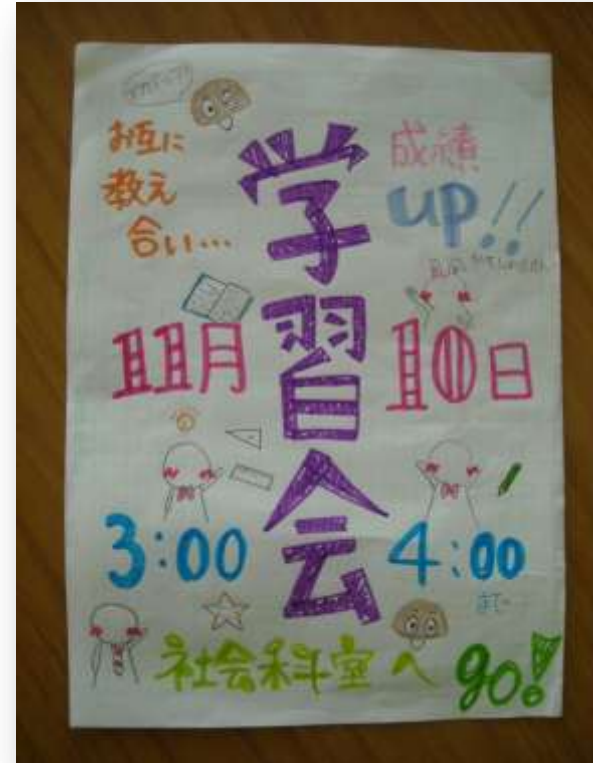 お互に
教え
合い…
学習会
成績
UP!!
11月
10日
3:00
4:00
まで
社会科室へ
go!